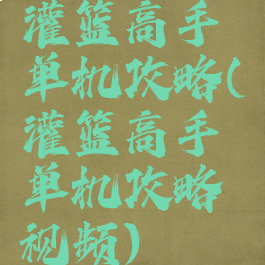 灌篮高手
单机攻略(
灌篮高手
单机攻略
视频)